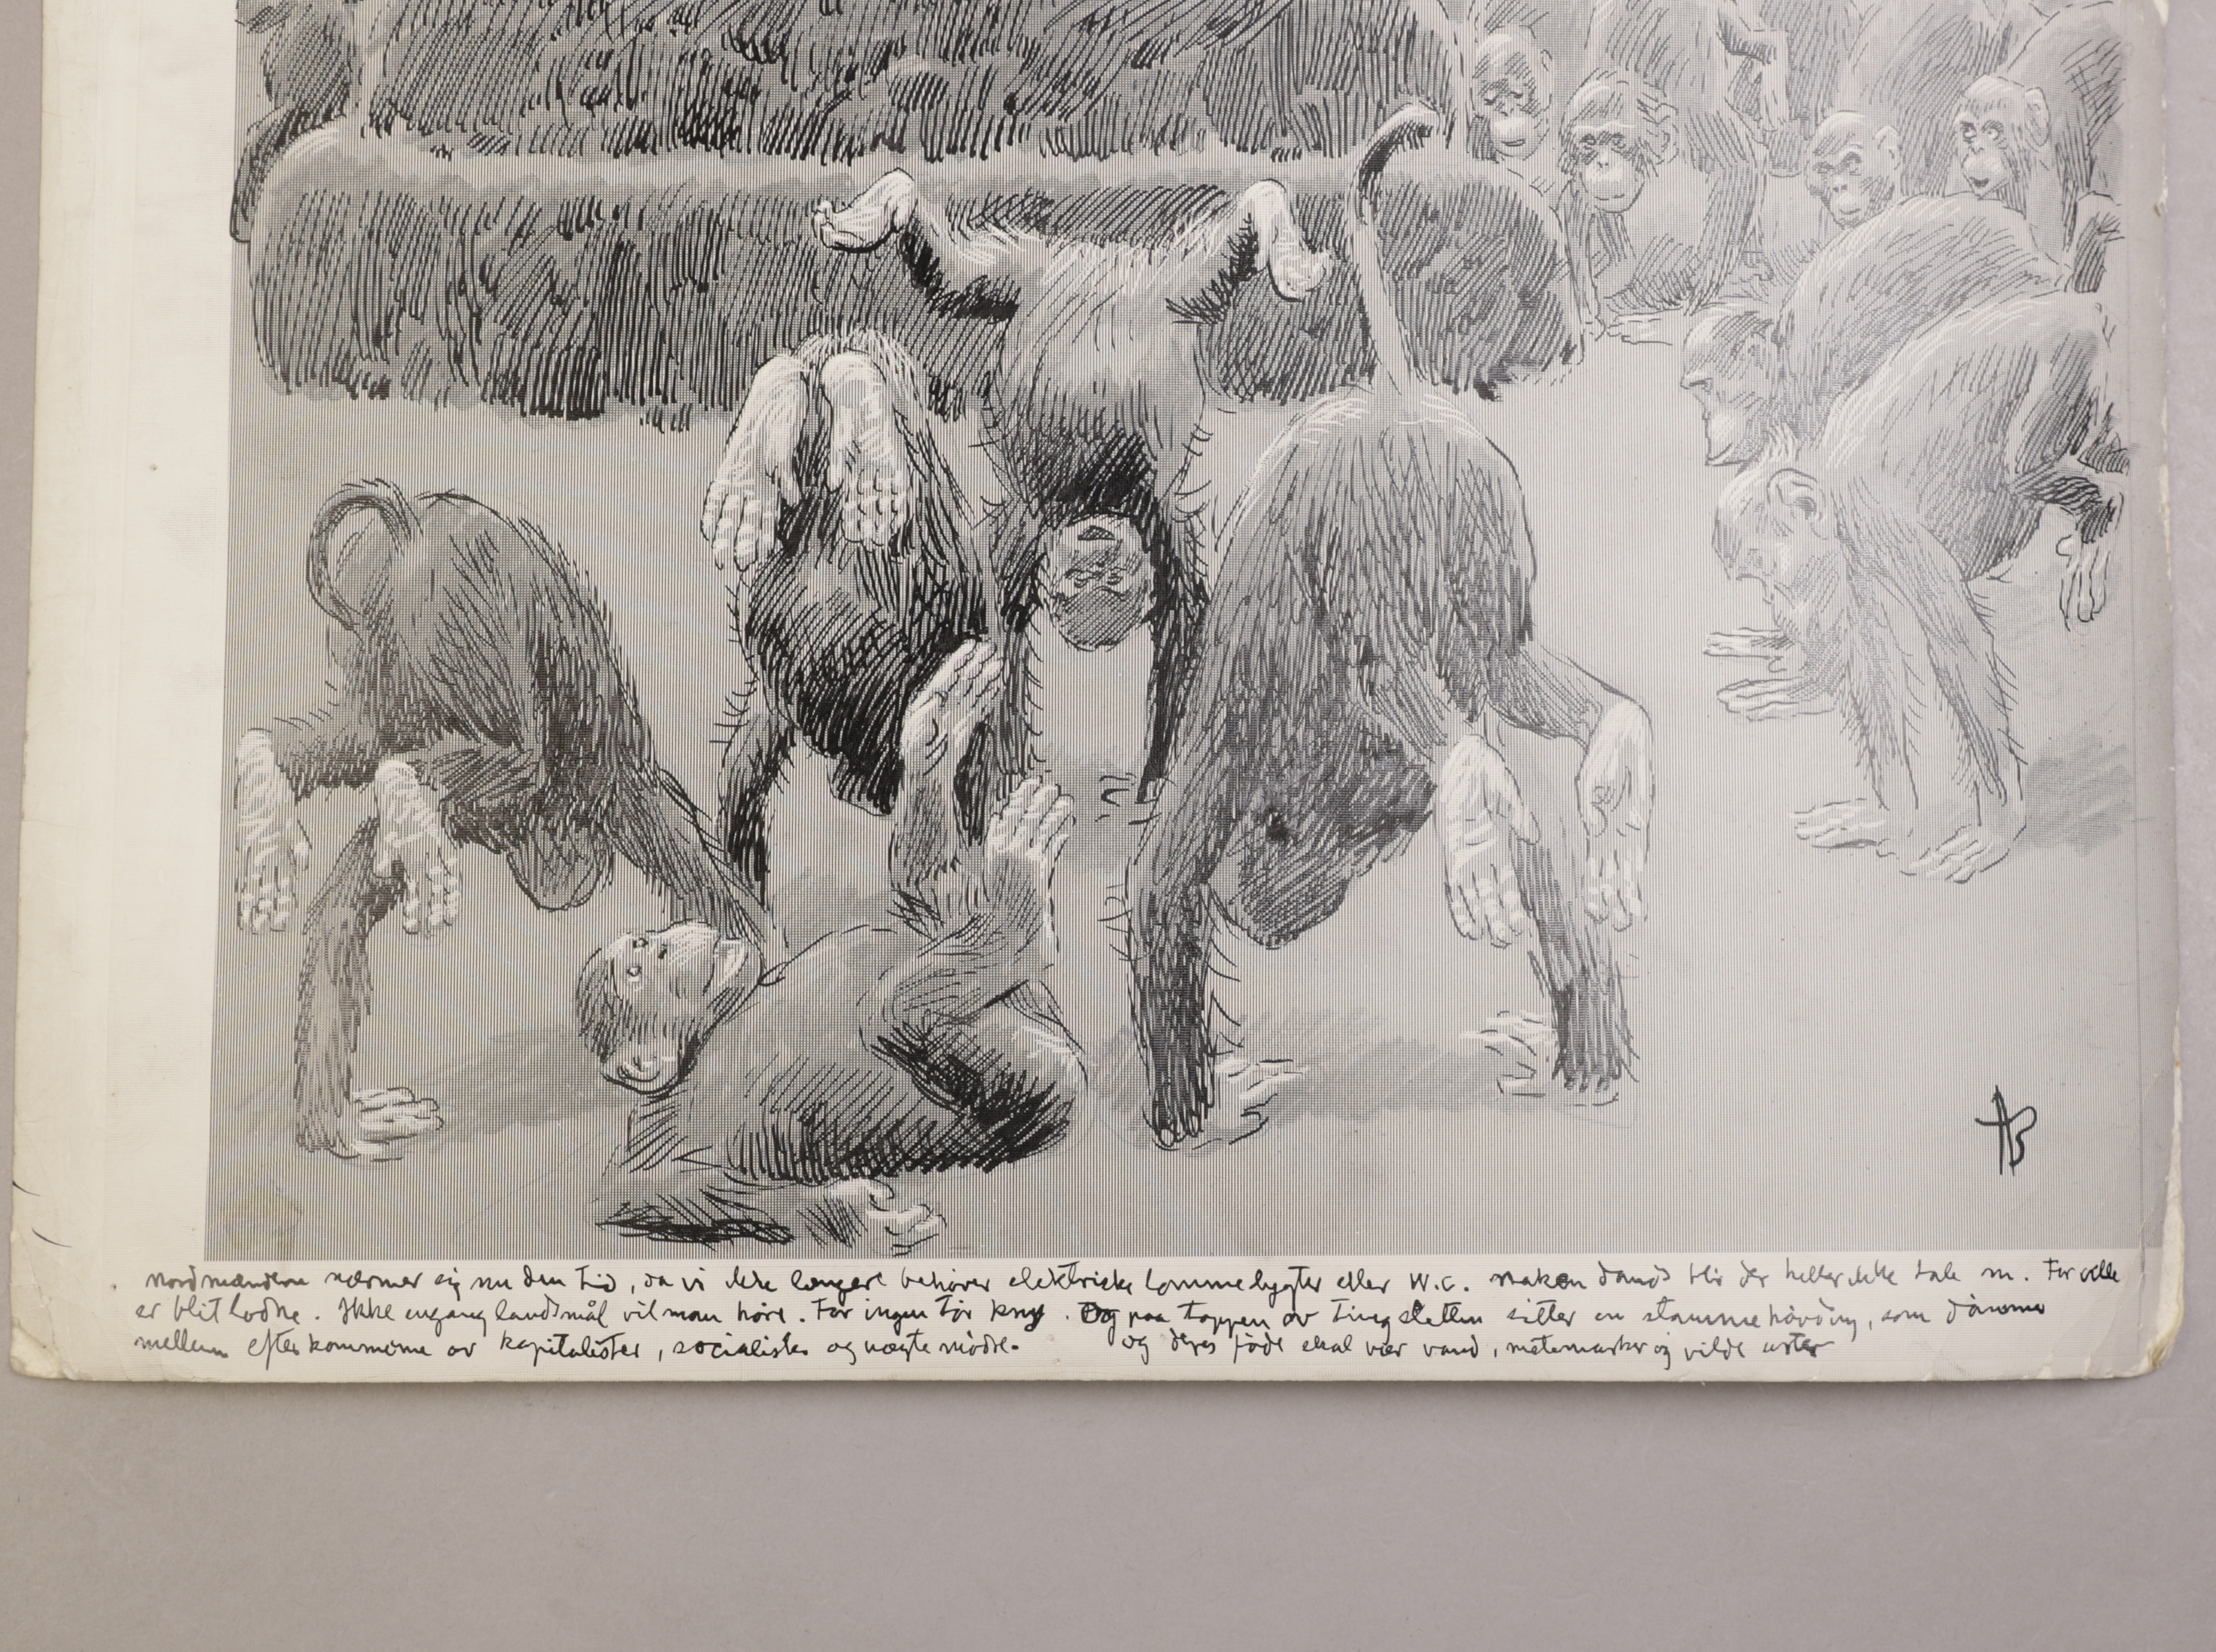 AB
nordmændene nærmer sig nu den tid, da vi ikke længer behøver elektriske lommelygter eller W.C. naken dands blir der heller ikke tale m. For alle
er blit lodne. Ikke engang landsmål vil man höre. For ingen tör kny. Og paa toppen av tingsletten sitter en stammehövding, som dömmer
mellem efterkommerne av kapitalister, socialister og nægte mödre. og deres föde skal vær vand, metemarker og vilde urter